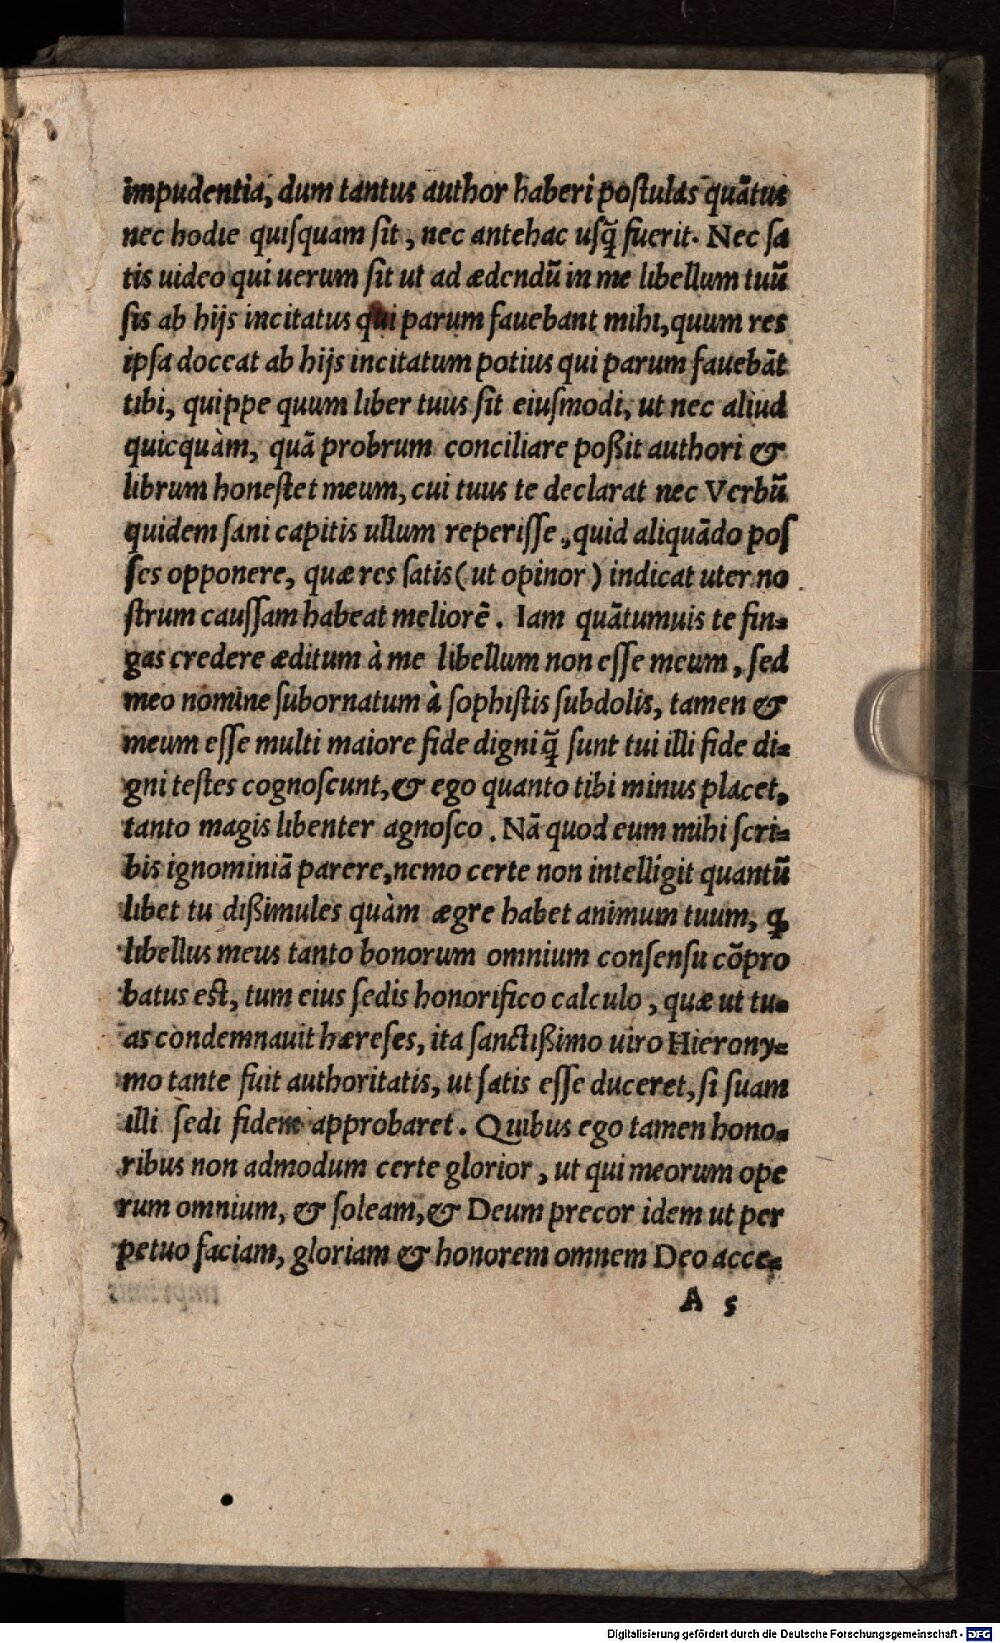 impudentia, dum tantus author haberi poſtulas quãtus
nec hodie quiſquam ſit, nec antehac uſq̃ fuerit. Nec ſa
tis uideo qui uerum ſit ut ad ædendũ in me libellum tuũ
ſis ab hijs incitatus qui parum fauebant mihi, quum res
ipſa doceat ab hijs incitatum potius qui parum fauebãt
tibi, quippe quum liber tuus ſit eiuſmodi, ut nec aliud
quicquàm, quã probrum conciliare poßit authori &
librum honeſtet meum, cui tuus te declarat nec Verbũ
quidem ſani capitis ullum reperiſſe, quid aliquãdo poſ
ſes opponere, quæ res ſatis (ut opinor) indicat uter no
ſtrum cauſſam habeat meliorẽ. Iam quãtumuis te fin-
gas credere æditum à me libellum non eſſe meum, ſed
meo nomine ſubornatum à ſophiſtis ſubdolis, tamen &
meum eſſe multi maiore fide digni q̃ ſunt tui illi fide di-
gni teſtes cognoſcunt, & ego quanto tibi minus placet,
tanto magis libenter agnoſco. Nã quod eum mihi ſcri-
bis ignominiã parere, nemo certe non intelligit quantũ
libet tu dißimules quàm ægre habet animum tuum, ꝙ
libellus meus tanto bonorum omnium conſenſu cõpro
batus eſt, tum eius ſedis honorifico calculo, quæ ut tu-
as condemnauit hæreſes, ita ſanctißimo uiro Hierony-
mo tante fuit authoritatis, ut ſatis eſſe duceret, ſi ſuam
illi ſedi fidem approbaret. Quibus ego tamen hono-
ribus non admodum certe glorior, ut qui meorum ope
rum omnium, & ſoleam, & Deum precor idem ut per
petuo faciam, gloriam & honorem omnem Deo acce-
A 5
Digitalisierung gefördert durch die Deutsche Forschungsgemeinschaft - DFG